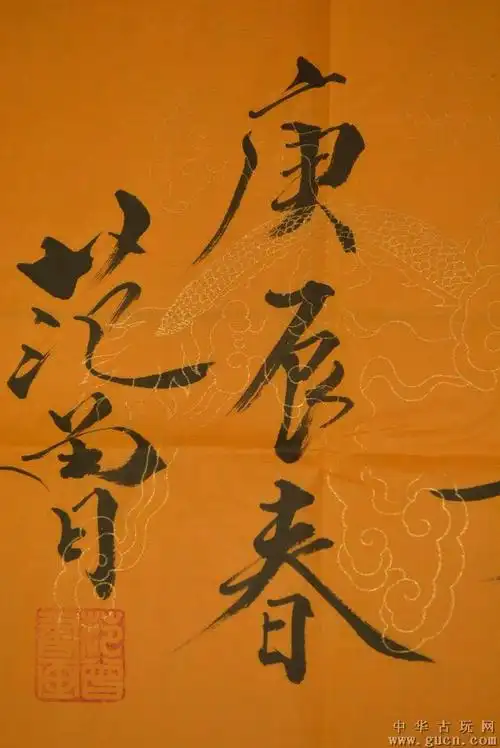 庚辰春
范曾
中华古玩网
www.gucn.com